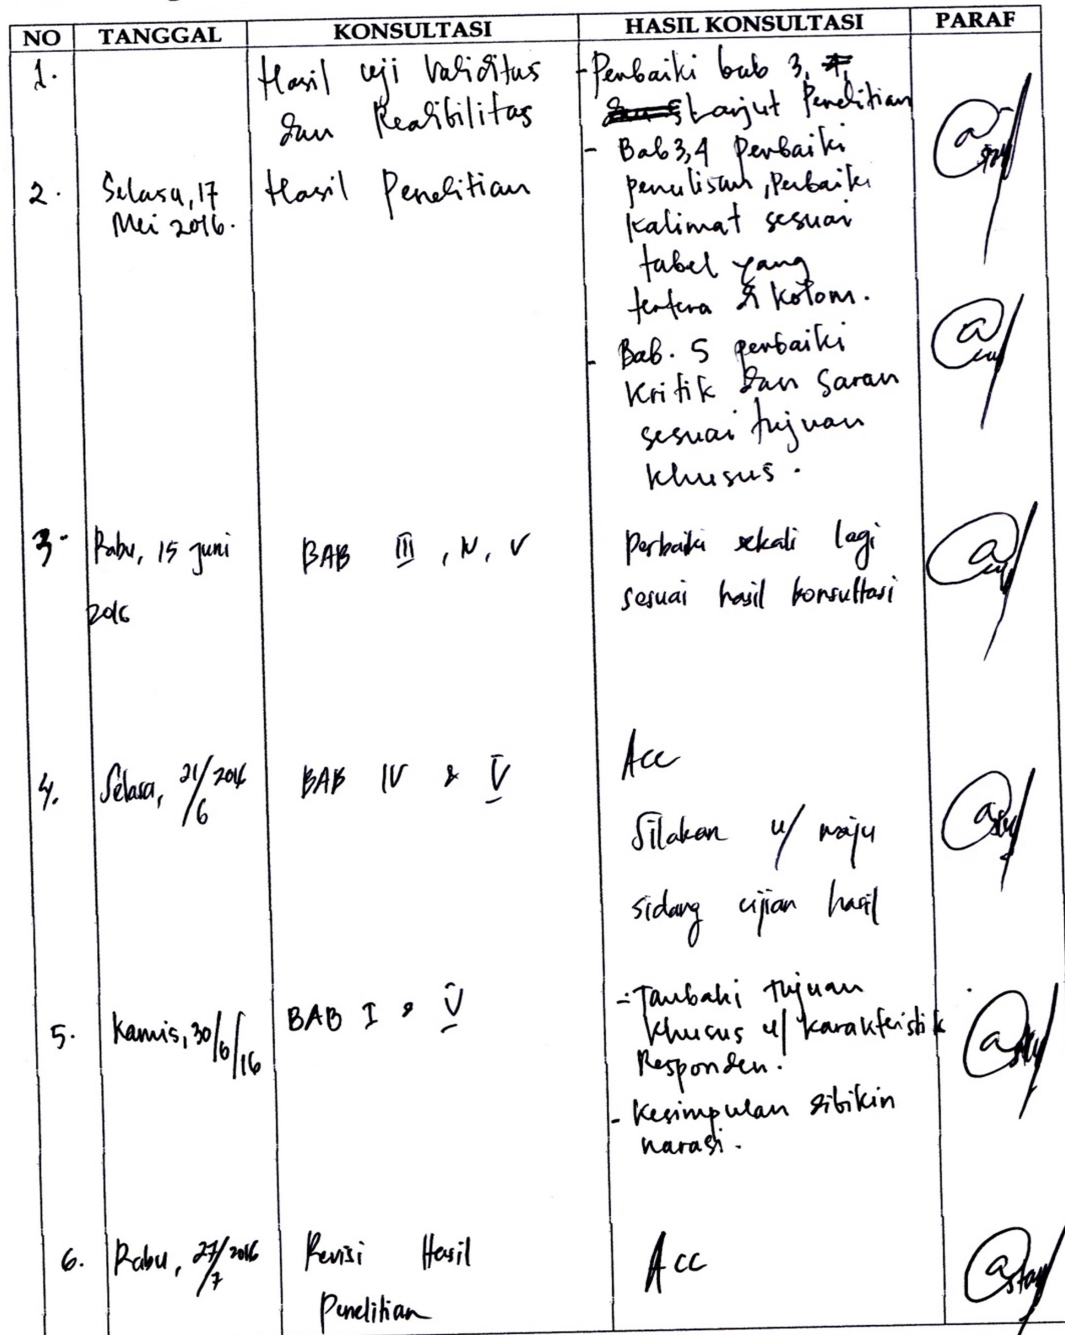 NO TANGGAL KONSULTASI HASIL KONSULTASI PARAF
1. Hasil uji Validitas
dan Realibilitas
- Perbaiki bab 3,
Lanjut Penelitian
2. Selasa, 17
Mei 2016.
Hasil Penelitian
- Bab 3,4 Perbaiki
penulisan, Perbaiki
kalimat sesuai
tabel yang
tertera di kolom.
- Bab. 5 perbaiki
kritik dan saran
sesuai tujuan
khusus.
3. Rabu, 15 Juni
2016
BAB III, IV, V
Perbaiki sekali lagi
sesuai hasil konsultasi
4. Selasa, 21/6 2016
BAB IV & V
Acc
Silakan u/ maju
sidang ujian hasil
5. Kamis, 30/6/16
BAB I & V
- Tambahi tujuan
khusus u/ karakteristik
Responden.
- Kesimpulan dibikin
narasi.
6. Rabu, 27/7 2016
Revisi Hasil
Penelitian
Acc